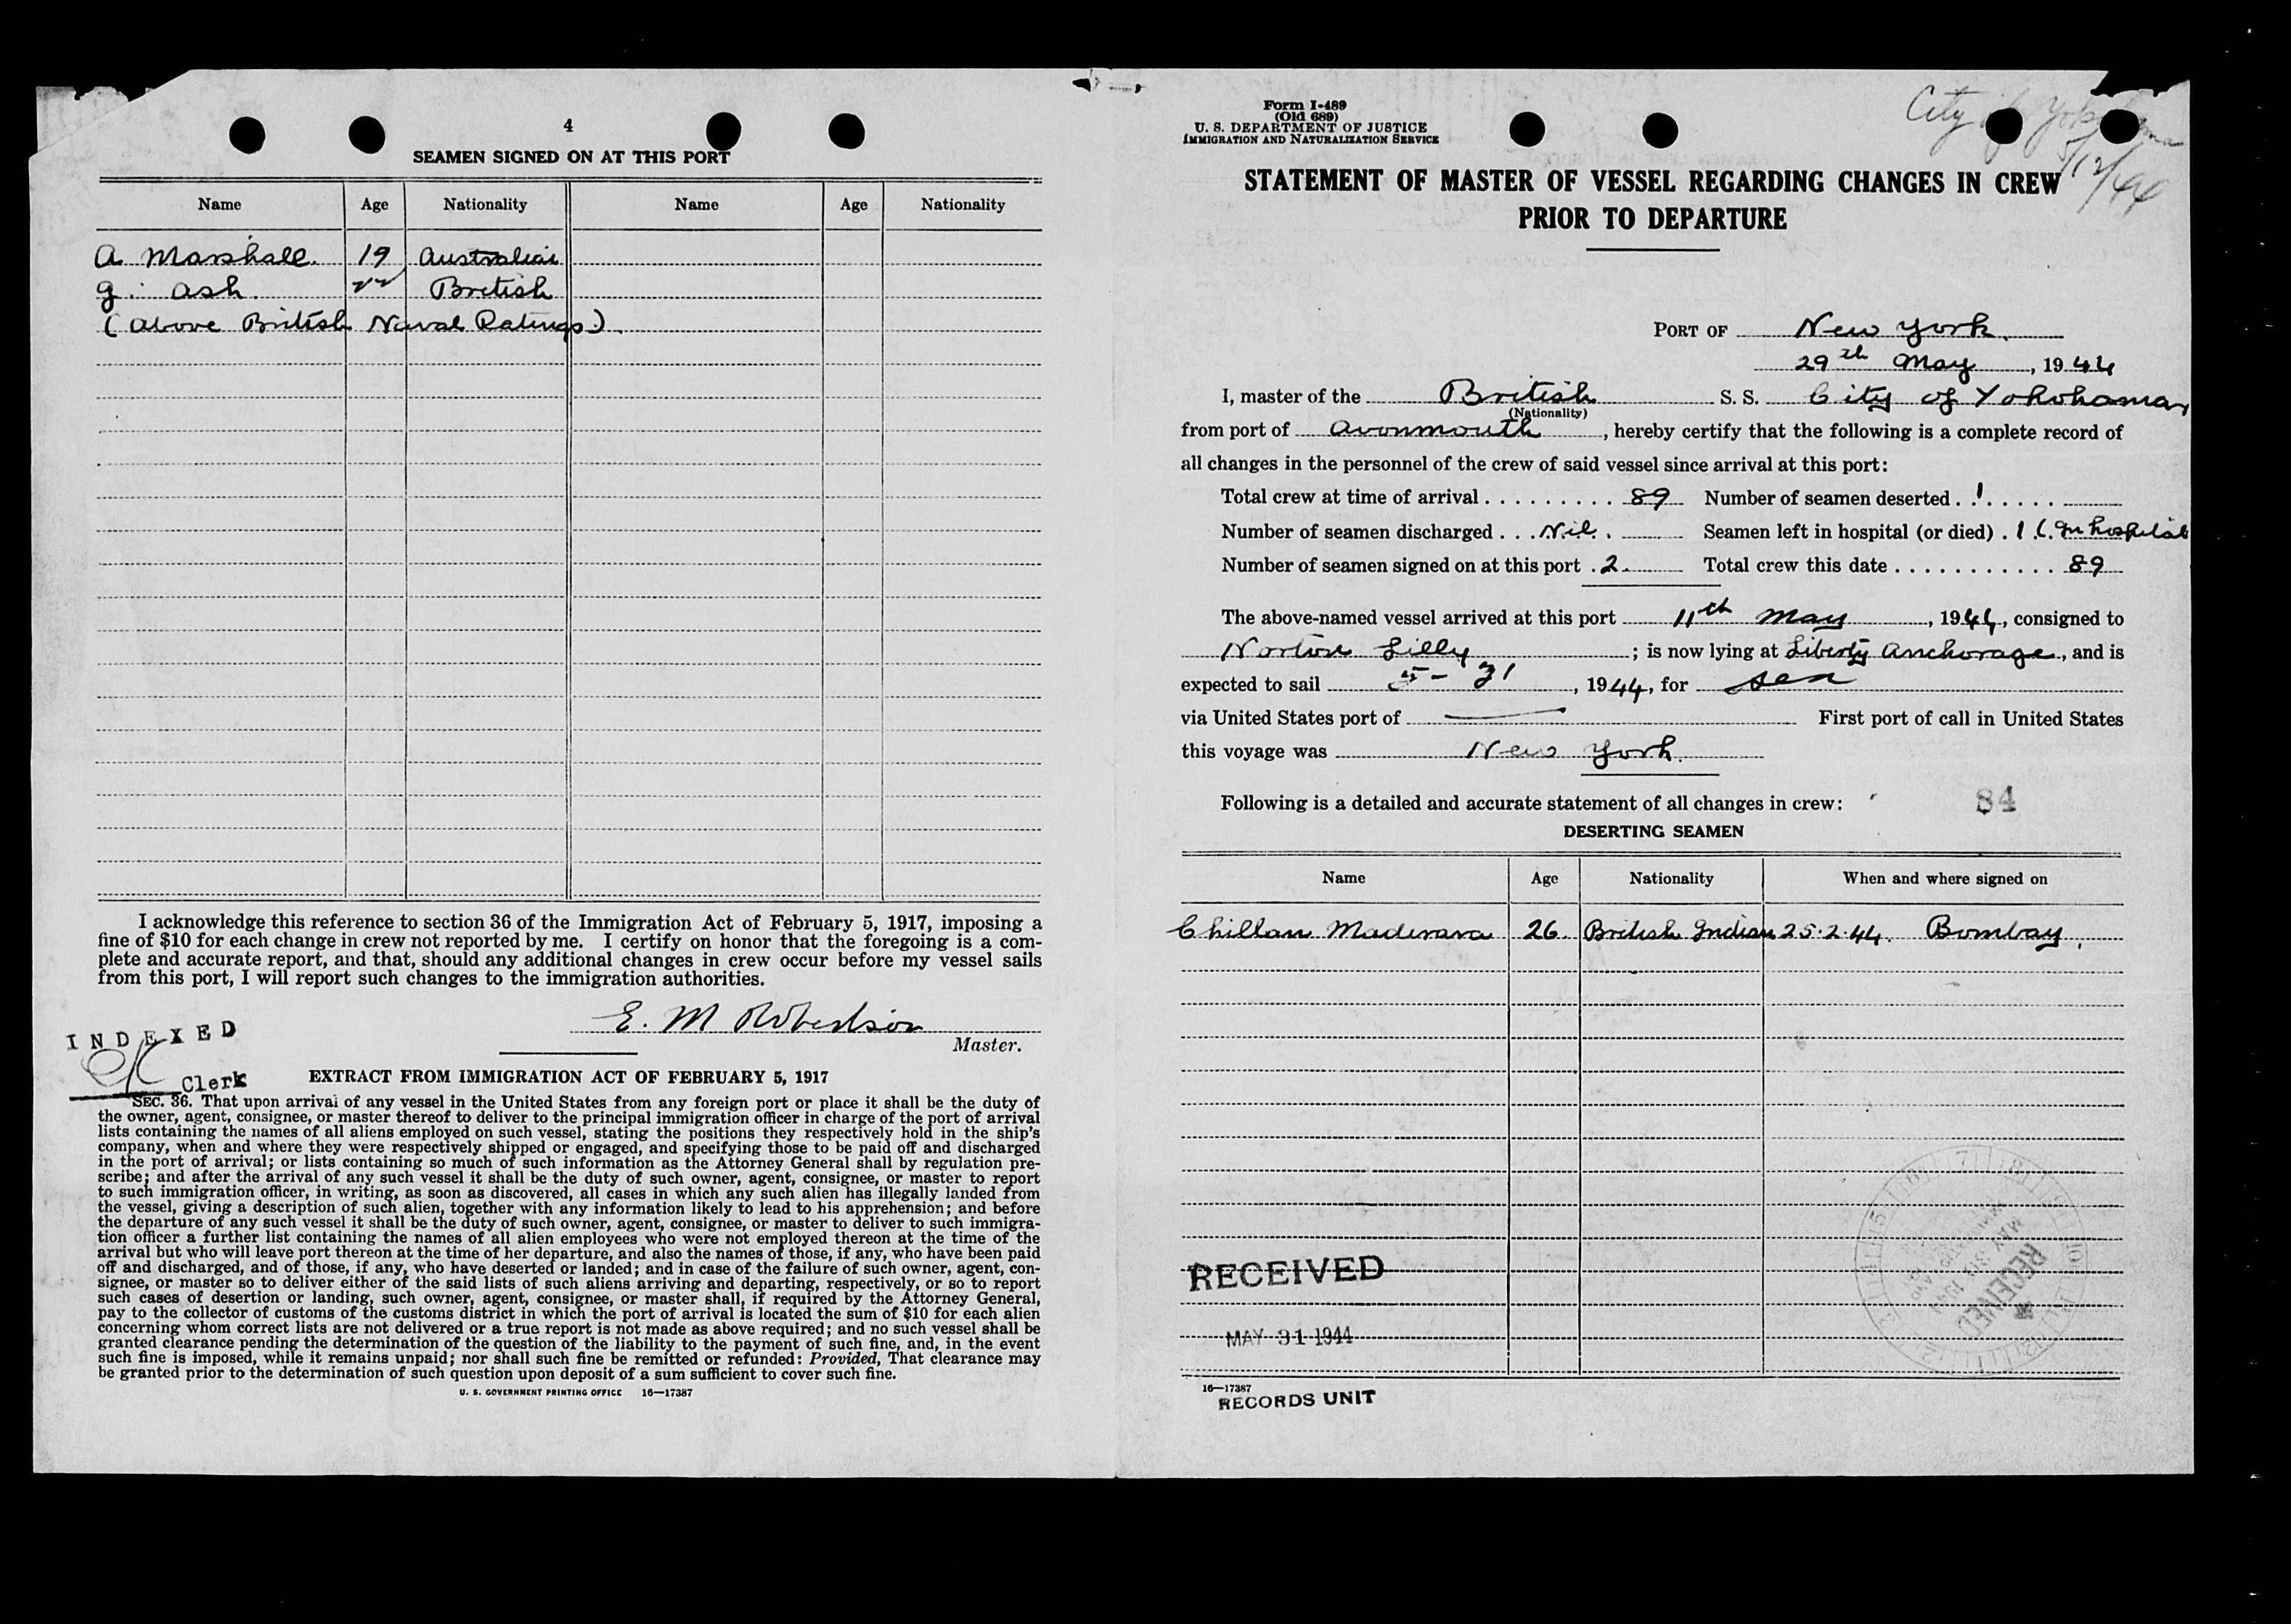 4
SEAMEN SIGNED ON AT THIS PORT
Name Age Nationality Name Age Nationality
A. Marshall. 19 Australian
G. Ash. 22 British
(Above British Naval Ratings).
I acknowledge this reference to section 36 of the Immigration Act of February 5, 1917, imposing a
fine of $10 for each change in crew not reported by me. I certify on honor that the foregoing is a com-
plete and accurate report, and that, should any additional changes in crew occur before my vessel sails
from this port, I will report such changes to the immigration authorities.
E. M Robertson
Master.
INDEXED
Clerk
EXTRACT FROM IMMIGRATION ACT OF FEBRUARY 5, 1917
SEC. 36. That upon arrival of any vessel in the United States from any foreign port or place it shall be the duty of
the owner, agent, consignee, or master thereof to deliver to the principal immigration officer in charge of the port of arrival
lists containing the names of all aliens employed on such vessel, stating the positions they respectively hold in the ship's
company, when and where they were respectively shipped or engaged, and specifying those to be paid off and discharged
in the port of arrival; or lists containing so much of such information as the Attorney General shall by regulation pre-
scribe; and after the arrival of any such vessel it shall be the duty of such owner, agent, consignee, or master to report
to such immigration officer, in writing, as soon as discovered, all cases in which any such alien has illegally landed from
the vessel, giving a description of such alien, together with any information likely to lead to his apprehension; and before
the departure of any such vessel it shall be the duty of such owner, agent, consignee, or master to deliver to such immigra-
tion officer a further list containing the names of all alien employees who were not employed thereon at the time of the
arrival but who will leave port thereon at the time of her departure, and also the names of those, if any, who have been paid
off and discharged, and of those, if any, who have deserted or landed; and in case of the failure of such owner, agent, con-
signee, or master so to deliver either of the said lists of such aliens arriving and departing, respectively, or so to report
such cases of desertion or landing, such owner, agent, consignee, or master shall, if required by the Attorney General,
pay to the collector of customs of the customs district in which the port of arrival is located the sum of $10 for each alien
concerning whom correct lists are not delivered or a true report is not made as above required; and no such vessel shall be
granted clearance pending the determination of the question of the liability to the payment of such fine, and, in the event
such fine is imposed, while it remains unpaid; nor shall such fine be remitted or refunded: Provided, That clearance may
be granted prior to the determination of such question upon deposit of a sum sufficient to cover such fine.
U. S. GOVERNMENT PRINTING OFFICE 16—17387
Form I-489
(Old 689)
U. S. DEPARTMENT OF JUSTICE
IMMIGRATION AND NATURALIZATION SERVICE
City of Yokohama
5/12/44
STATEMENT OF MASTER OF VESSEL REGARDING CHANGES IN CREW
PRIOR TO DEPARTURE
PORT OF New York.
29th May, 1944
I, master of the British S. S. City of Yokohama,
(Nationality)
from port of Avonmouth, hereby certify that the following is a complete record of
all changes in the personnel of the crew of said vessel since arrival at this port:
Total crew at time of arrival 89 Number of seamen deserted 1
Number of seamen discharged Nil. Seamen left in hospital (or died) 1 (In hospital
Number of seamen signed on at this port 2. Total crew this date 89
The above-named vessel arrived at this port 11th May, 1944, consigned to
Norton Lilly; is now lying at Liberty Anchorage, and is
expected to sail 5-31, 1944, for sea
via United States port of — First port of call in United States
this voyage was New York.
Following is a detailed and accurate statement of all changes in crew: 84
DESERTING SEAMEN
Name Age Nationality When and where signed on
Chillan Madivara 26. British Indian 25.2.44. Bombay.
RECEIVED
MAY 31 1944
RECEIVED
MAY 30 1944
16—17387
RECORDS UNIT